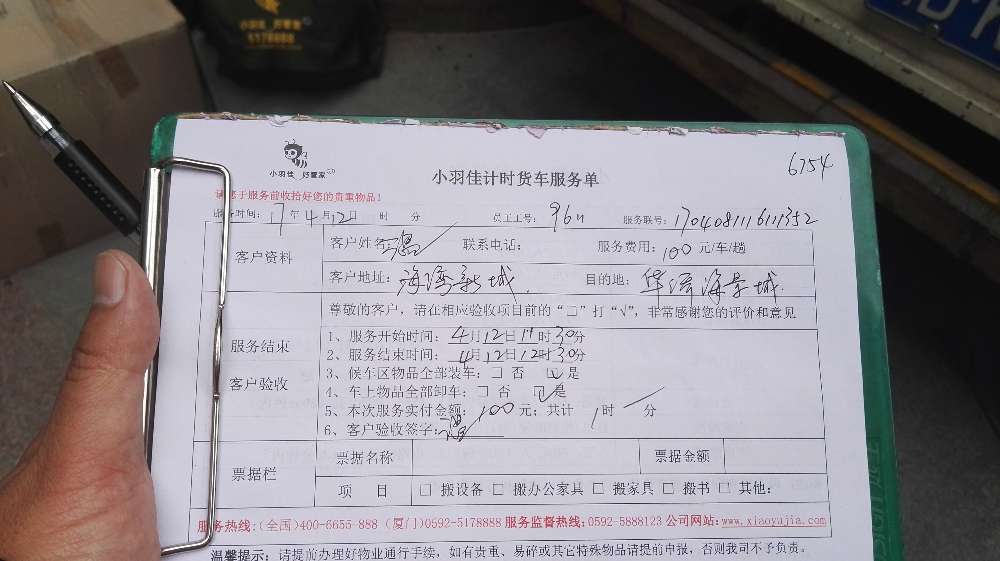 5178888
小羽佳 好管家
小羽佳计时货车服务单
6754
请您于服务前收拾好您的贵重物品!
服务时间: 17年4月12日 时 分 员工工号: 服务联号:
客户资料
客户姓名: 联系电话: 服务费用: 100元/车/趟
客户地址: 海湾新城 目的地:
尊敬的客户, 请在相应验收项目前的“□”打“√”, 非常感谢您的评价和意见
服务结束
客户验收
1、服务开始时间: 4月12日11时30分
2、服务结束时间: 4月12日12时30分
3、候车区物品全部装车: □ 否 ☑ 是
4、车上物品全部卸车: □ 否 ☑ 是
5、本次服务实付金额: 100元; 共计 1时 分
6、客户验收签字:
票据栏
票据名称 票据金额
项 目 □ 搬设备 □ 搬办公家具 □ 搬家具 □ 搬书 □ 其他:
服务热线:(全国)400-6655-888 (厦门)0592-5178888 服务监督热线:0592-5888123 公司网站:www.xiaoyujia.com
温馨提示: 请提前办理好物业通行手续, 如有贵重、易碎或其它特殊物品请提前申报, 否则我司不予负责。